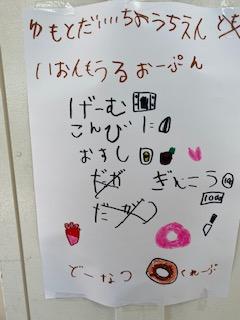 ゆもとだいいちようちえん
いおんもうる おーぷん
げーむ
こんびに
おすし
ぎんこう
10
100
どーなつ くれーぷ